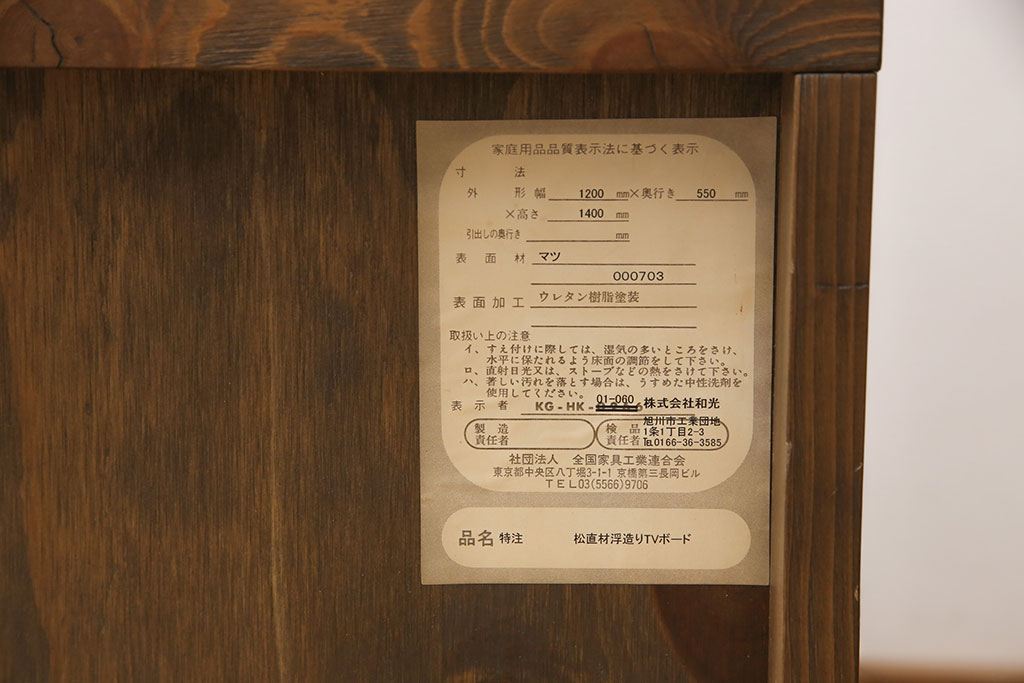 家庭用品品質表示法に基づく表示
寸法
外形 幅 1200 mm×奥行き 550 mm
×高さ 1400 mm
引出しの奥行き mm
表面材 マツ
000703
表面加工 ウレタン樹脂塗装
取扱い上の注意
イ、すえ付けに際しては、湿気の多いところをさけ、
水平に保たれるよう床面の調節をして下さい。
ロ、直射日光又は、ストーブなどの熱をさけて下さい。
ハ、著しい汚れを落とす場合は、うすめた中性洗剤を
使用してください。
01-060
表示者 KG-HK- 株式会社和光
旭川市工業団地
1条1丁目2-3
℡0166-36-3585
製造責任者
検品責任者
社団法人 全国家具工業連合会
東京都中央区八丁堀3-1-1 京橋第三長岡ビル
TEL03(5566)9706
品名 特注 松直材浮造りTVボード